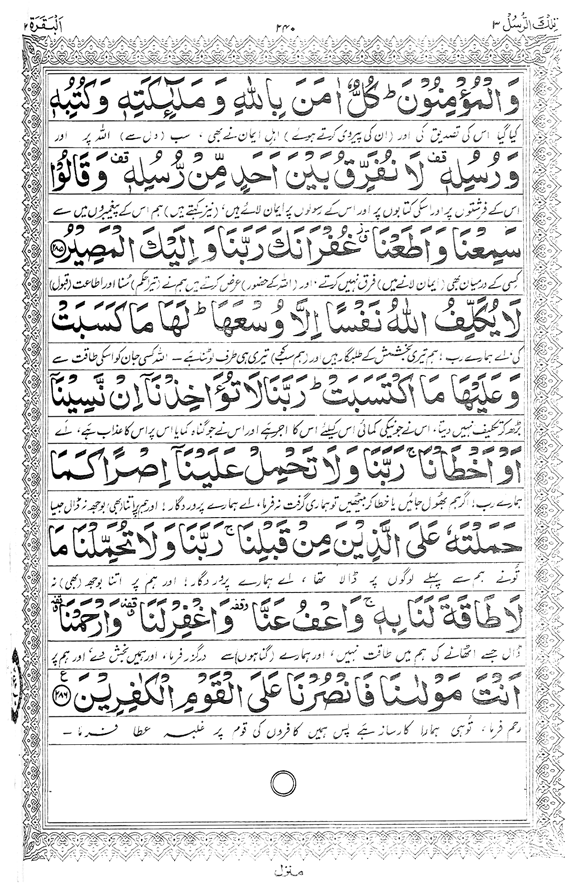 تلك الرسل ٣ ٢٤٠ البقرة ٢
وَالْمُؤْمِنُوْنَ ؕ كُلٌّ اٰمَنَ بِاللّٰهِ وَ مَلٰٓئِكَتِهٖ وَكُتُبِهٖ
گیا گیا اس کی تصدیق کی اور (ان کی پیروی کرتے ہوئے) اہل ایمان نے بھی ، سب (دل سے) اللہ پر اور
وَرُسُلِهٖ ۟ لَا نُفَرِّقُ بَيْنَ اَحَدٍ مِّنْ رُّسُلِهٖ ۟ وَقَالُوْا
اس کے فرشتوں پر اور اسکی کتابوں پر اور اس کے رسولوں پر ایمان لائے ہیں، (نیز کہتے ہیں) ہم اس کے پیغمبروں میں سے
سَمِعْنَا وَاَطَعْنَا ٭ غُفْرَانَكَ رَبَّنَا وَاِلَيْكَ الْمَصِيْرُ ﴿٢٨٥﴾
کسی کے درمیان بھی (ایمان لانے میں) فرق نہیں کرتے ، اور (اللہ کے حضور) عرض کرتے ہیں ہم نے (تیرا حکم) سُنا اور اطاعت (قبول)
لَا يُكَلِّفُ اللّٰهُ نَفْسًا اِلَّا وُسْعَهَا ؕ لَهَا مَا كَسَبَتْ
کی، اے ہمارے رب ! ہم تیری بخشش کے طلبگار ہیں اور (ہم سب کو) تیری ہی طرف لوٹنا ہے - اللہ کسی جان کو اسکی طاقت سے
وَعَلَيْهَا مَا اكْتَسَبَتْ ؕ رَبَّنَا لَا تُؤَاخِذْنَاۤ اِنْ نَّسِيْنَاۤ
بڑھ کر تکلیف نہیں دیتا ، اس نے جو نیکی کمائی اس کیلئے اس کا اجر ہے اور اس نے جو گناہ کمایا اس پر اس کا عذاب ہے ، اے
اَوْ اَخْطَاْنَا ۚ رَبَّنَا وَلَا تَحْمِلْ عَلَيْنَاۤ اِصْرًا كَمَا
ہمارے رب ! اگر ہم بھول جائیں یا خطا کر بیٹھیں تو ہماری گرفت نہ فرما ، اے ہمارے پروردگار ! اور ہم پر اتنا (بھی) بوجھ نہ ڈال جیسا
حَمَلْتَهٗ عَلَى الَّذِيْنَ مِنْ قَبْلِنَا ۚ رَبَّنَا وَلَا تُحَمِّلْنَا مَا
تُونے ہم سے پہلے لوگوں پر ڈالا تھا ، اے ہمارے پروردگار ! اور ہم پر اتنا بوجھ (بھی) نہ
لَا طَاقَةَ لَنَا بِهٖ ۚ وَاعْفُ عَنَّا ۥ وَاغْفِرْ لَنَا ۥ وَارْحَمْنَا ۥ
ڈال جسے اٹھانے کی ہم میں طاقت نہیں ، اور ہمارے (گناہوں) سے درگزر فرما ، اور ہمیں بخش دے ، اور ہم پر
اَنْتَ مَوْلٰىنَا فَانْصُرْنَا عَلَى الْقَوْمِ الْكٰفِرِيْنَ ﴿٢٨٦﴾ ع
رحم فرما ، تُو ہی ہمارا کارساز ہے پس ہمیں کافروں کی قوم پر غلبہ عطا فرما -
منزل